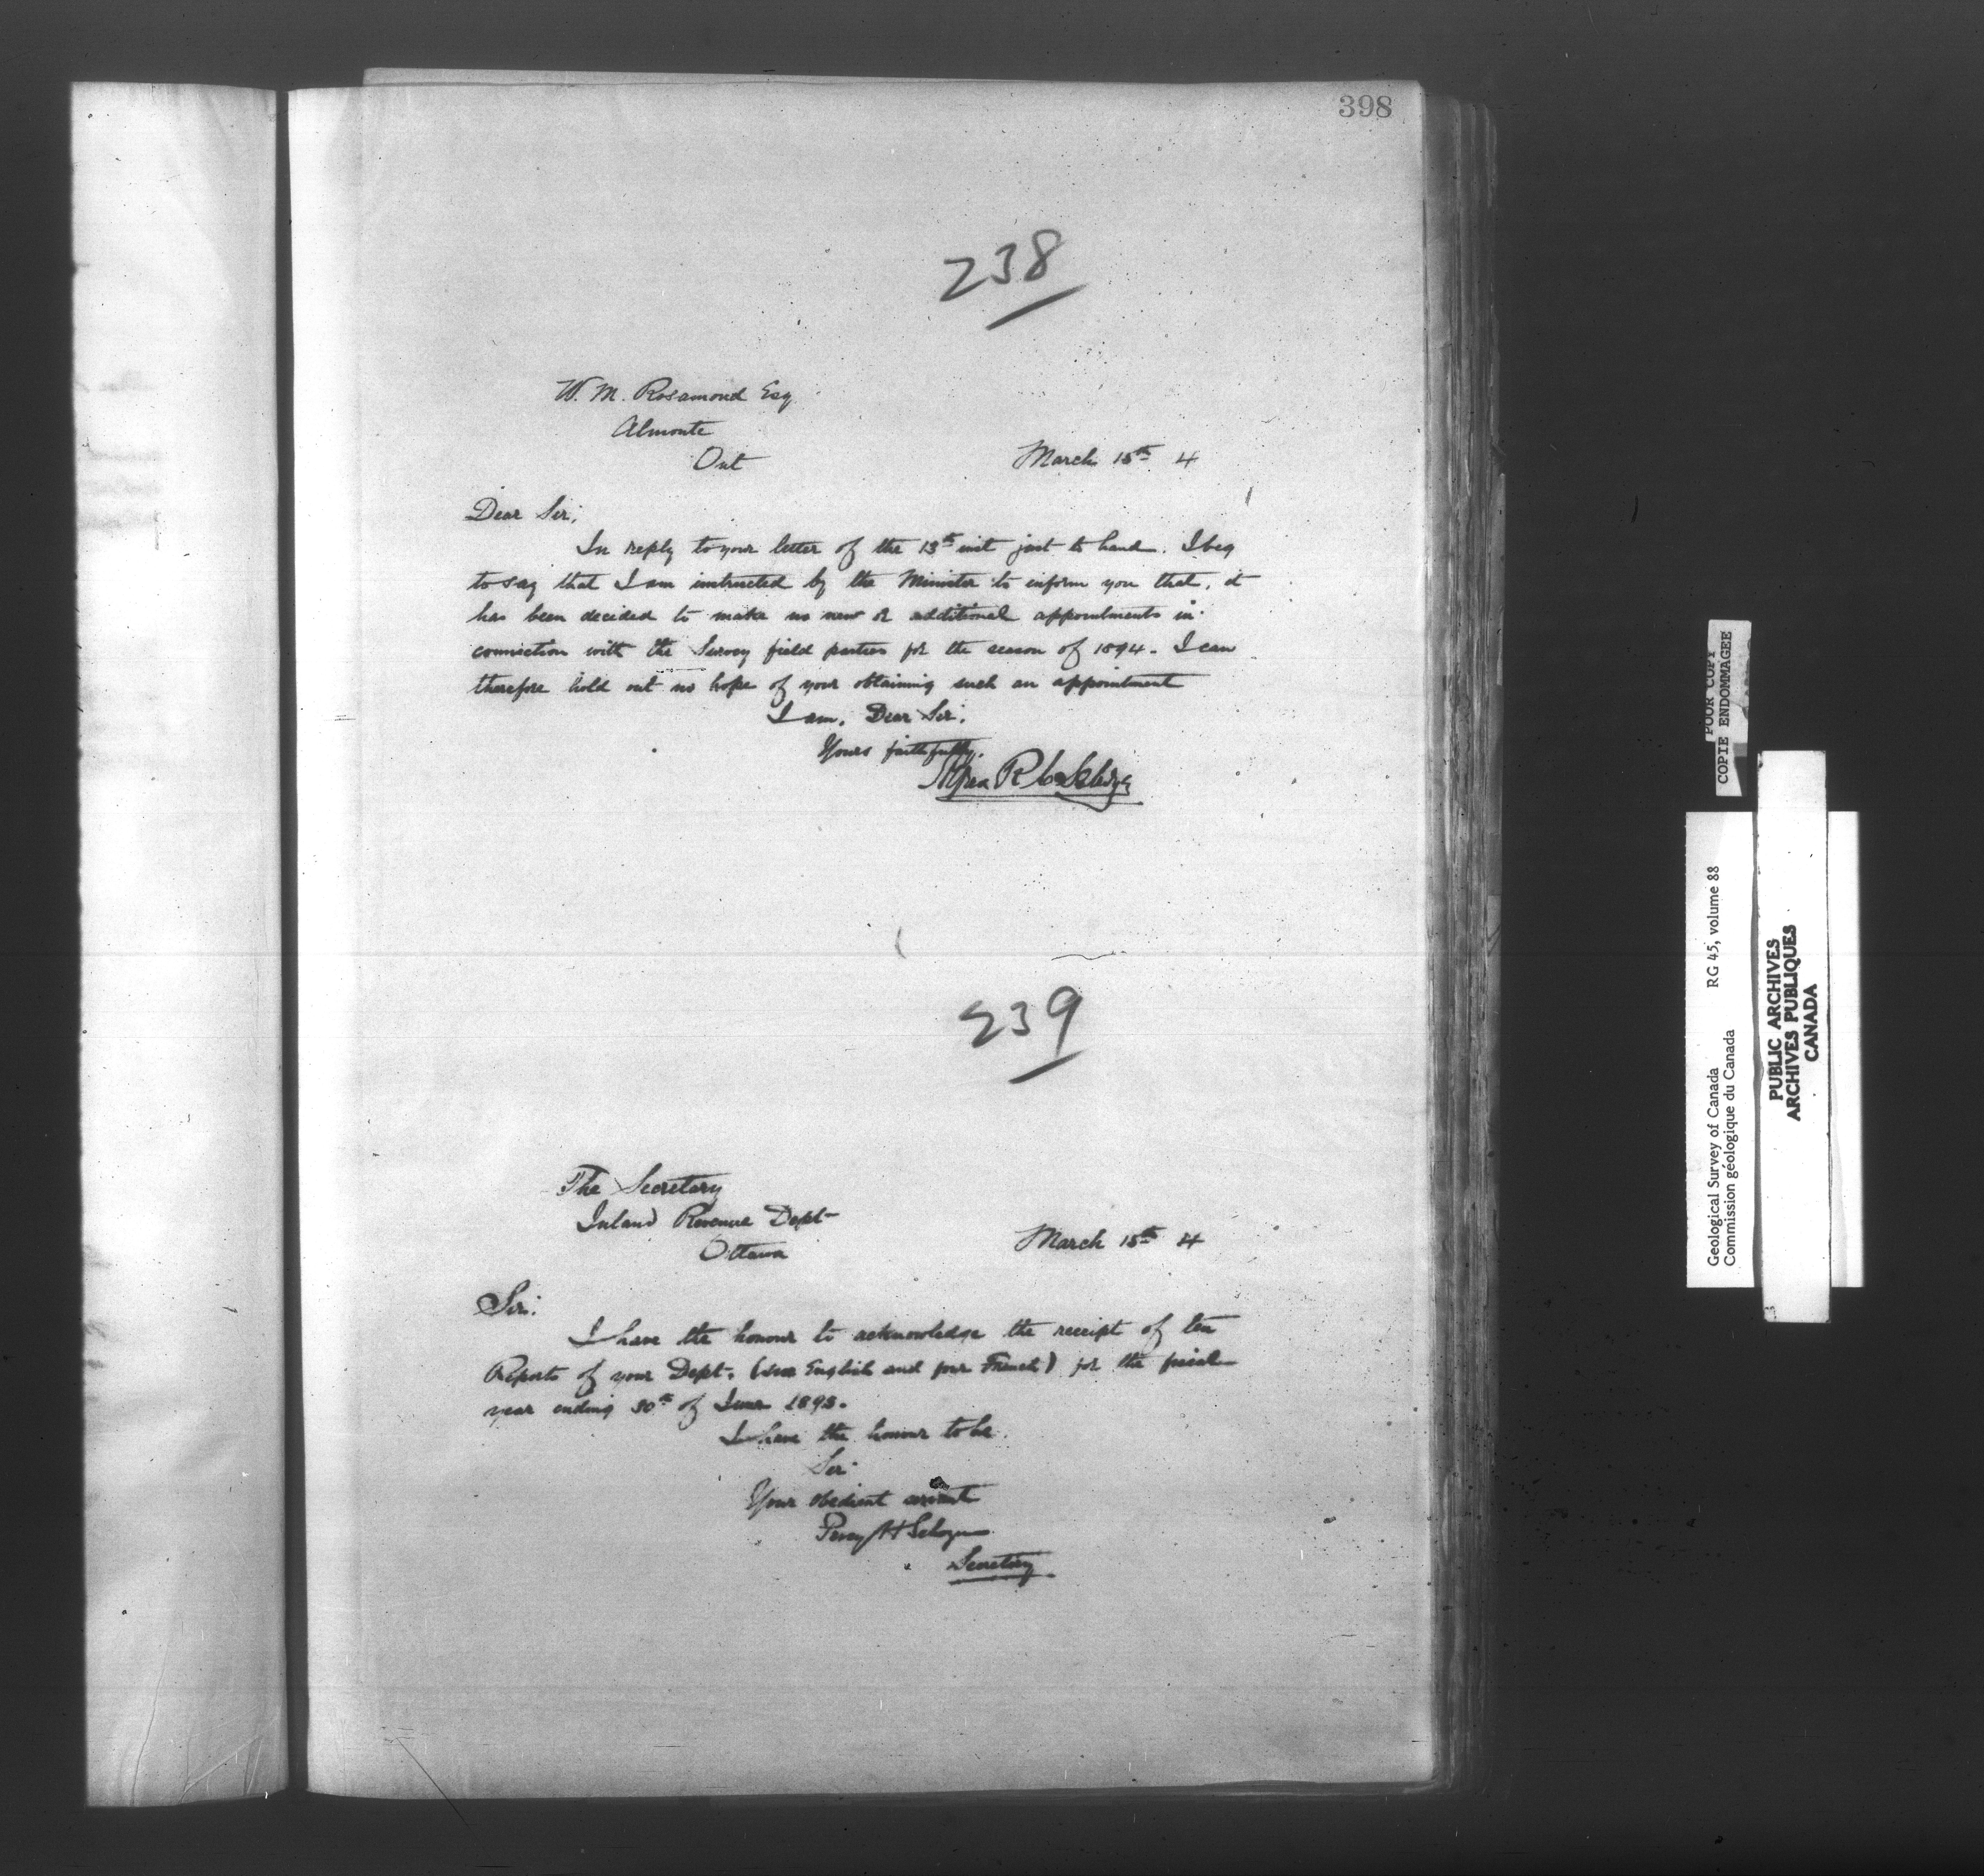 398
238
W. M. Rosamond Esq
Almonte
Ont
March 15th 4
Dear Sir,
In reply to your letter of the 13th inst just to hand. I beg
to say that I am instructed by the Minister to inform you that, it
has been decided to make no new or additional appointments in
connection with the Survey field parties for the season of 1894. I can
therefore hold out no hope of your obtaining such an appointment
I am, Dear Sir,
Yours faithfully,
Alfred R C Selwyn
239
The Secretary
Inland Revenue Dept
Ottawa
March 15th 4
Sir:
I have the honour to acknowledge the receipt of ten
Reports of your Dept. (six English and four French) for the fiscal
year ending 30th of June 1893.
I have the honour to be
Sir
Your obedient servant
Percy H Selwyn
Secretary
POOR COPY
COPIE ENDOMMAGEE
Geological Survey of Canada RG 45, volume 88
Commission géologique du Canada
PUBLIC ARCHIVES
ARCHIVES PUBLIQUES
CANADA